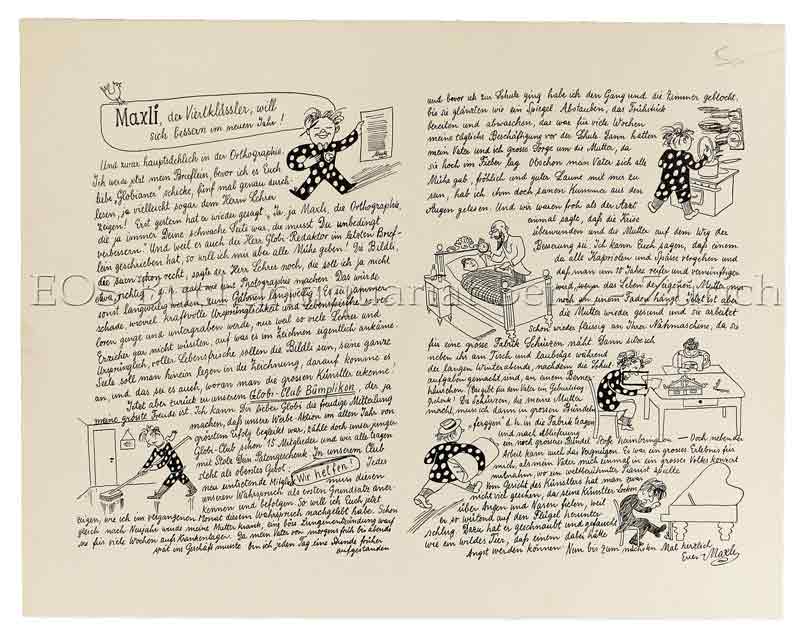 Maxli, der Viertklässler, will
sich bessern im neuen Jahr!
Und zwar hauptsächlich in der Orthographie.
Ich werde jetzt mein Brieflein, bevor ich es Euch
liebe „Globianer" schicke, fünf mal genau durch-
lesen, ja vielleicht sogar dem Herrn Lehrer
zeigen! Erst gestern hat er wieder gesagt „Ja ja Maxli, die Orthographie,
die ja immer Deine schwache Seite war, die musst Du unbedingt
verbessern." Und weil es auch der Herr Globi-Redaktor im letzten Brief-
lein geschrieben hat, so will ich mir aber alle Mühe geben! Die Bildli,
die seien schon recht, sagte der Herr Lehrer noch, die soll ich ja nicht
etwa „richtig" d.h. exakt wie eine Photographie machen. Das würde
sonst langweilig werden, zum Gähnen langweilig! Es sei jammer-
schade, wieviel kraftvolle Ursprünglichkeit und Lebensfrische so ver-
loren gienge und untergraben werde, nur weil so viele Lehrer und
Erzieher gar nicht wüssten, auf was es im Zeichnen eigentlich ankäme.
Ursprünglich, voller Lebensfrische sollen die Bildli sein, seine ganze
Seele soll man hinein legen in die Zeichnung, darauf komme es
an, und das sei es auch, woran man die grossen Künstler erkenne!
Jetzt aber zurück zu unserem Globi-Club Bümplikon, der ja
meine grösste Freude ist. Ich kann Dir lieber Globi die freudige Mitteilung
machen, daß unsere Werbe-Aktion im alten Jahr von
grösstem Erfolg begleitet war, zählt doch unser junger
Globi-Club schon 15 Mitglieder und wir alle tragen
mit Stolz Dein Patengeschenk. In unserem Club
steht als oberstes Gebot: Wir helfen! Jedes
neu eintretende Mitglied muss diesen
unseren Wahrspruch als ersten Grundsatz aner-
kennen und befolgen. So will ich Euch jetzt
zeigen, wie ich im vergangenen Monat diesem Wahrspruch nachgelebt habe. Schon
gleich nach Neujahr wurde meine Mutter krank, eine böse Lungenentzündung warf
sie für viele Wochen aufs Krankenlager. Da mein Vater von morgens früh bis abends
spät ins Geschäft musste bin ich jeden Tag eine Stunde früher
aufgestanden
und bevor ich zur Schule ging habe ich den Gang und die Zimmer geblocht,
bis sie glänzten wie ein Spiegel. Abstauben, das Frühstück
bereiten und abwaschen, das war für viele Wochen
meine tägliche Beschäftigung vor der Schule. Dann hatten
mein Vater und ich grosse Sorge um die Mutter, da
sie hoch im Fieber lag. Obschon mein Vater sich alle
Mühe gab, fröhlich und guter Laune mit mir zu
sein, hab ich ihm doch seinen Kummer aus den
Augen gelesen. Und wir waren froh als der Arzt
einmal sagte, daß die Krise
überwunden und die Mutter auf dem Weg der
Besserung sei. Ich kann Euch sagen, daß einem
da alle Kapriolen und Spässe vergehen und
daß man um 10 Jahre reifer und vernünftiger
wird, wenn das Leben der eigenen Mutter nur
noch an einem Faden hängt. Jetzt ist aber
die Mutter wieder gesund und sie arbeitet
schon wieder fleissig an ihrer Nähmaschine, da sie
für eine grosse Fabrik Schürzen näht. Dann sitze ich
neben ihr am Tisch und laubsäge während
der langen Winterabende, nachdem die Schul-
aufgaben gemacht sind, an einem Berner-
häuschen. Das gibt für den Vater ein Geburtstag-
geschenk! Die Schürzen, die meine Mutter
macht, muss ich dann in grossen Bündeln
„ferggen" d.h. in die Fabrik tragen
und nach Ablieferung
ein noch grösseres Bündel Stoffe heimbringen — Doch neben der
Arbeit kam auch das Vergnügen. Es war ein grosses Erlebnis für
mich, als mein Vater mich einmal in ein grosses Volkskonzert
mitnahm, wo ein weltberühmter Pianist spielte.
Vom Gesicht des Künstlers hat man zwar
nicht viel gesehen, da seine Künstler Locken
über Augen und Nasen fielen, weil
er so wütend auf den Flügel herunter
schlug. Dazu hat er geschnaubt und gefaucht
wie ein wildes Tier, daß einem dabei hätte
Angst werden können. Nun bis zum nächsten Mal herzlich
Euer Maxli